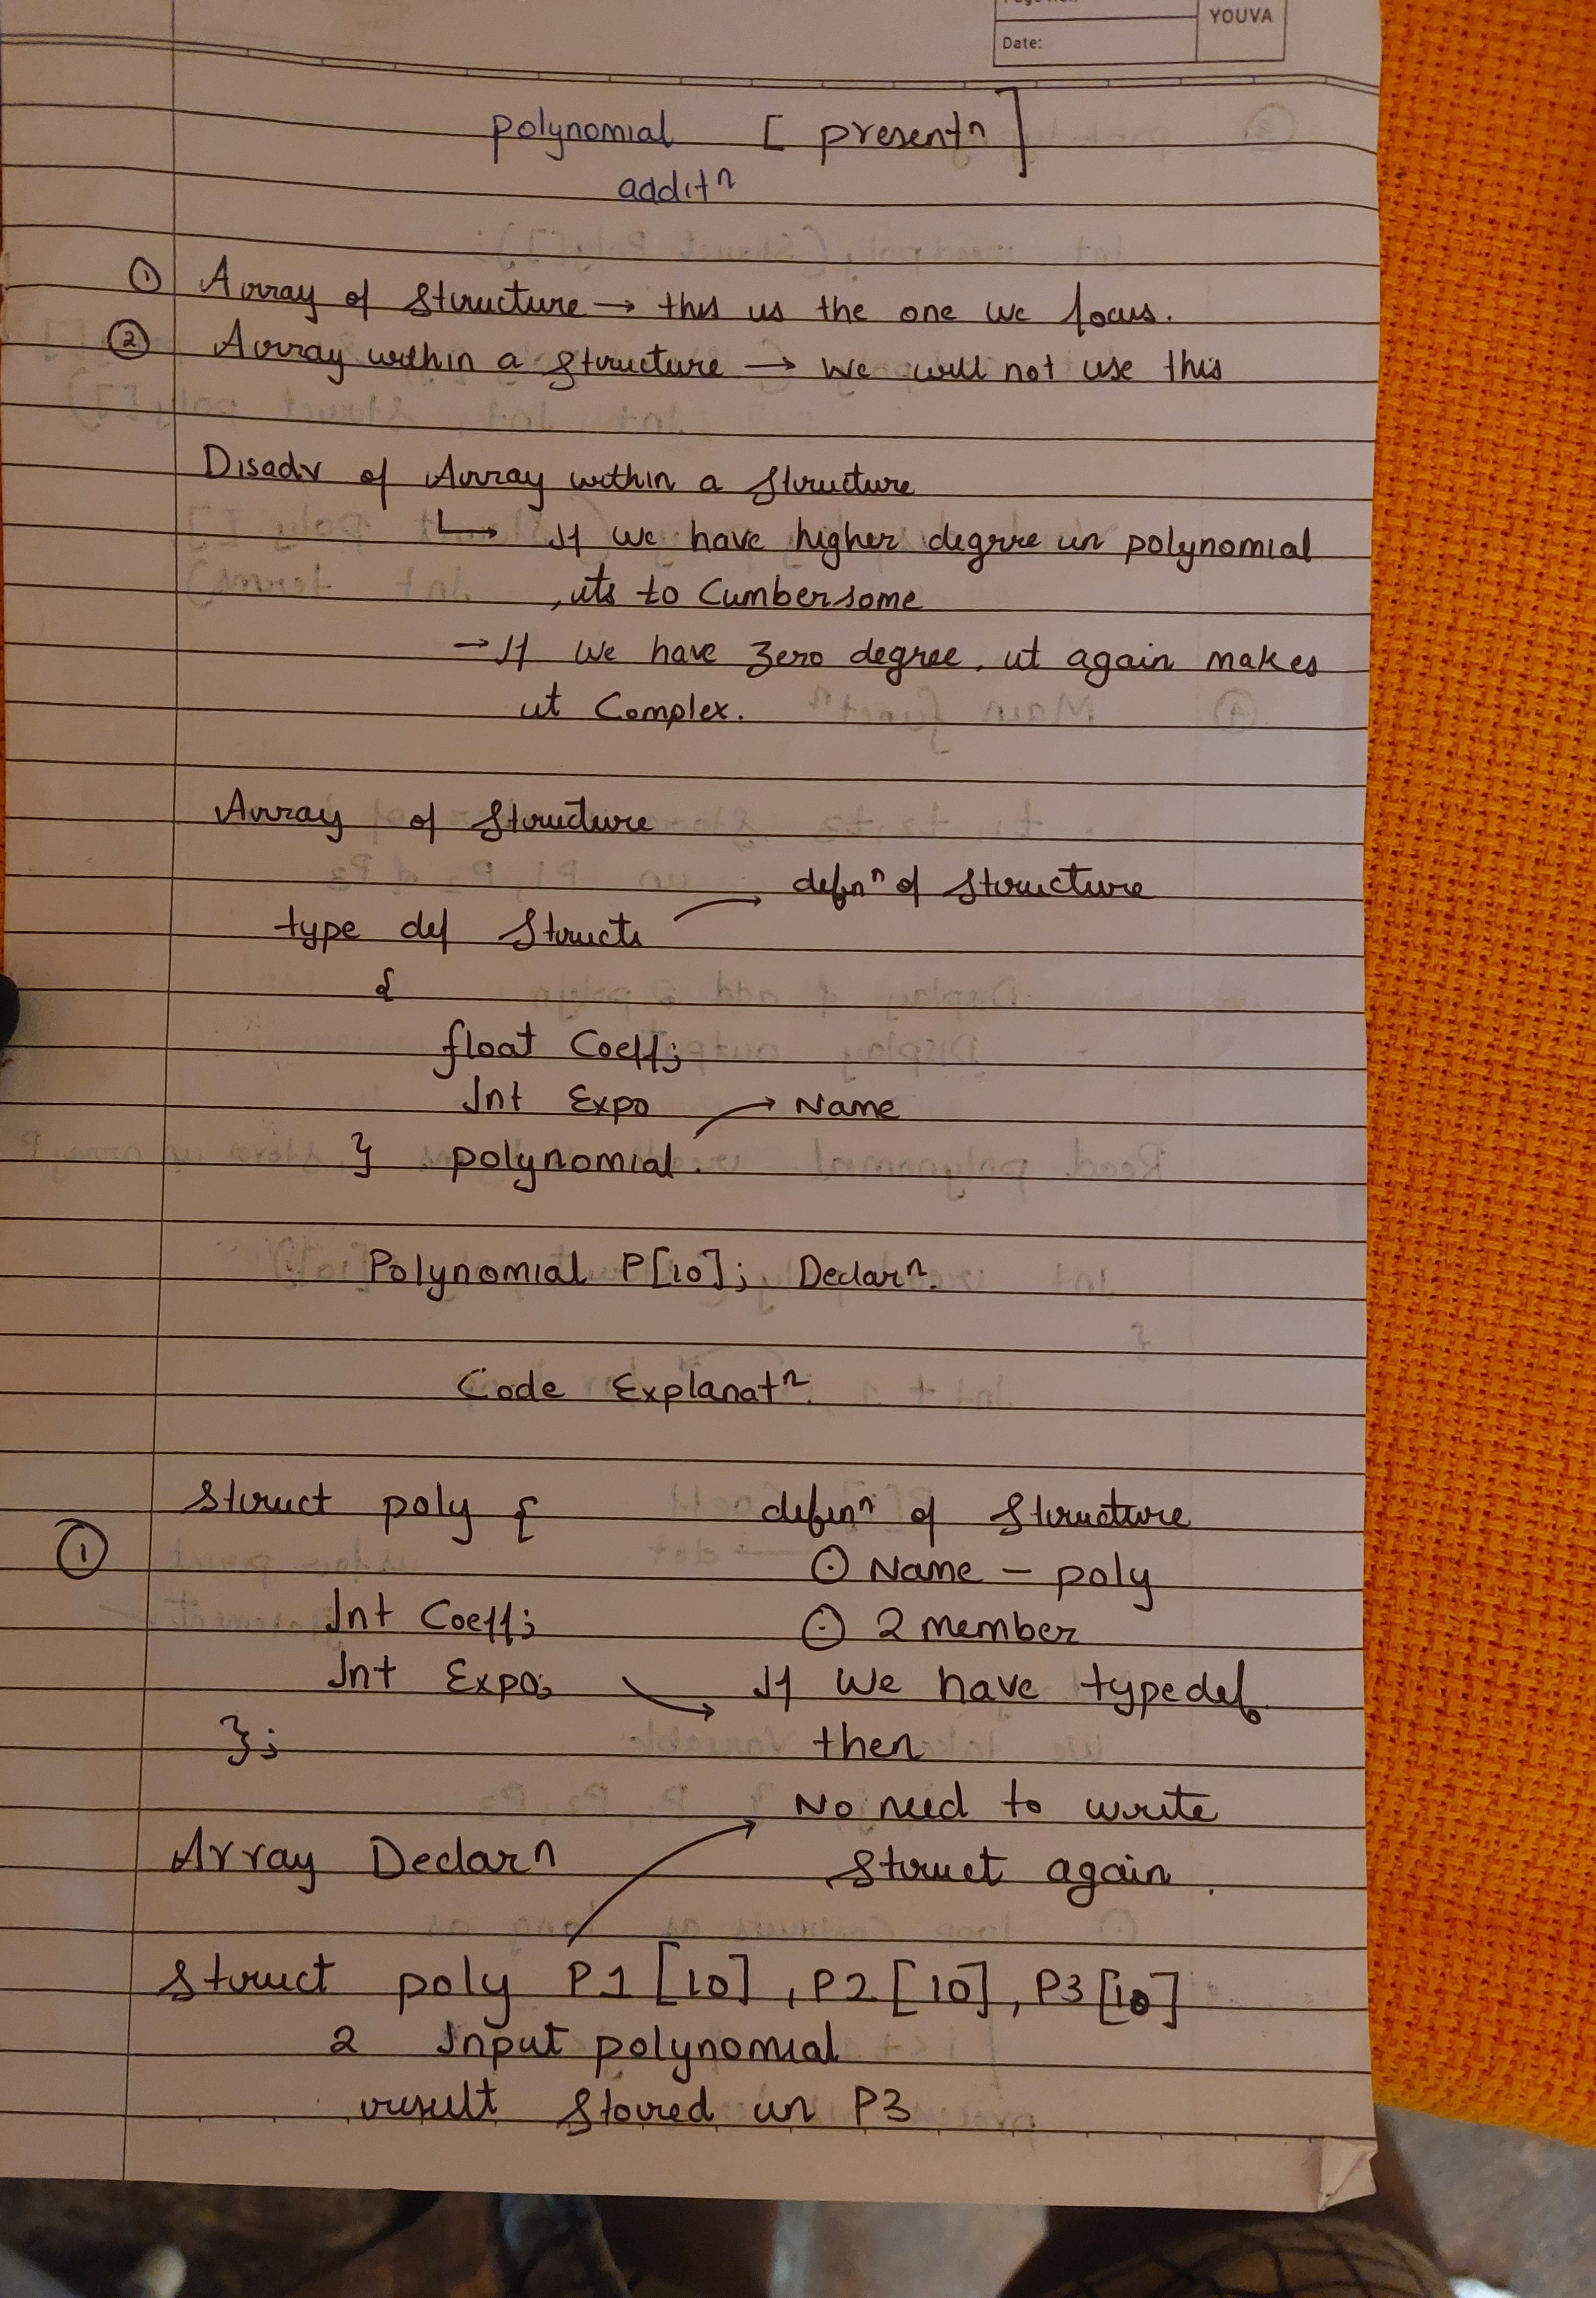 YOUVA
Date:
polynomial [ presentn ]
additn
① Array of Structure → this is the one we focus.
② Array within a Structure → we will not use this
Disadv of Array within a Structure
↳ If we have higher degree in polynomial
, its to Cumbersome
→ If we have Zero degree, it again makes
it Complex.
Array of Structure
defnn of Structure
type def Struct
{
float Coeff;
Int Expo → Name
} polynomial.
Polynomial P[10]; Declarn.
Code Explanatn.
Struct poly { definn of Structure
① ⊙ Name – poly
Int Coeff; ⊙ 2 member
Int Expo; → If we have typedef
}; then
No need to write
Array Declarn Struct again.
Struct poly P1 [10], P2 [10], P3 [10]
2 Input polynomial
result Stored in P3